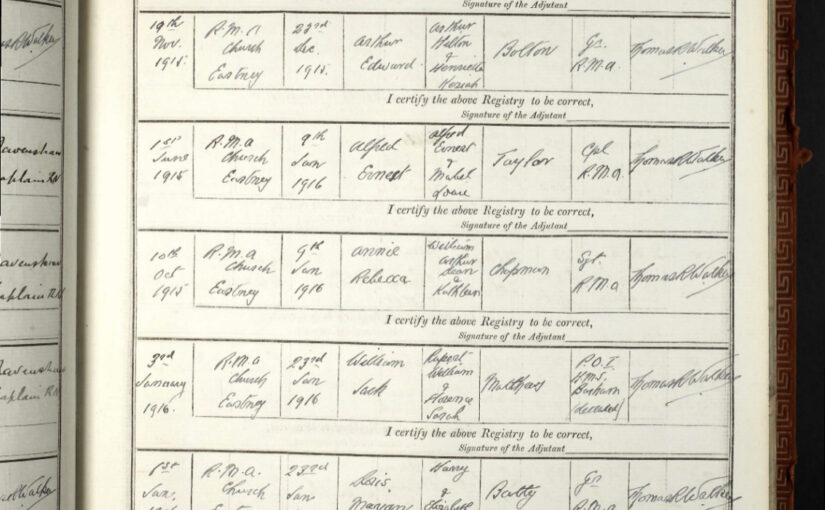 Signature of the Adjutant
19th Nov. 1915. R.M.A Church Eastney 23rd Dec. 1915. Arthur Edward Arthur & Henrietta Bolton Gr. R.M.A. Thomas R Walker
I certify the above Registry to be correct,
Signature of the Adjutant
1st June 1915 R.M.A Church Eastney 9th Jan 1916 Alfred Ernest Alfred Ernest & Mabel Taylor Cpl R.M.A. Thomas R Walker
I certify the above Registry to be correct,
Signature of the Adjutant
10th Oct 1915 R.M.A Church Eastney 9th Jan 1916 Annie Rebecca William Arthur & Kathleen Chapman Sgt. R.M.A Thomas R Walker
I certify the above Registry to be correct,
Signature of the Adjutant
3rd January 1916. R.M.A Church Eastney 23rd Jan 1916 William Jack Rupert William & Florence Sarah Matthews P.O.I H.M.S. (deceased) Thomas R Walker
I certify the above Registry to be correct,
Signature of the Adjutant
1st Jan. R.M.A. Church 23rd Jan Doris Harry & Batty Gr R.M.A Thomas R Walker